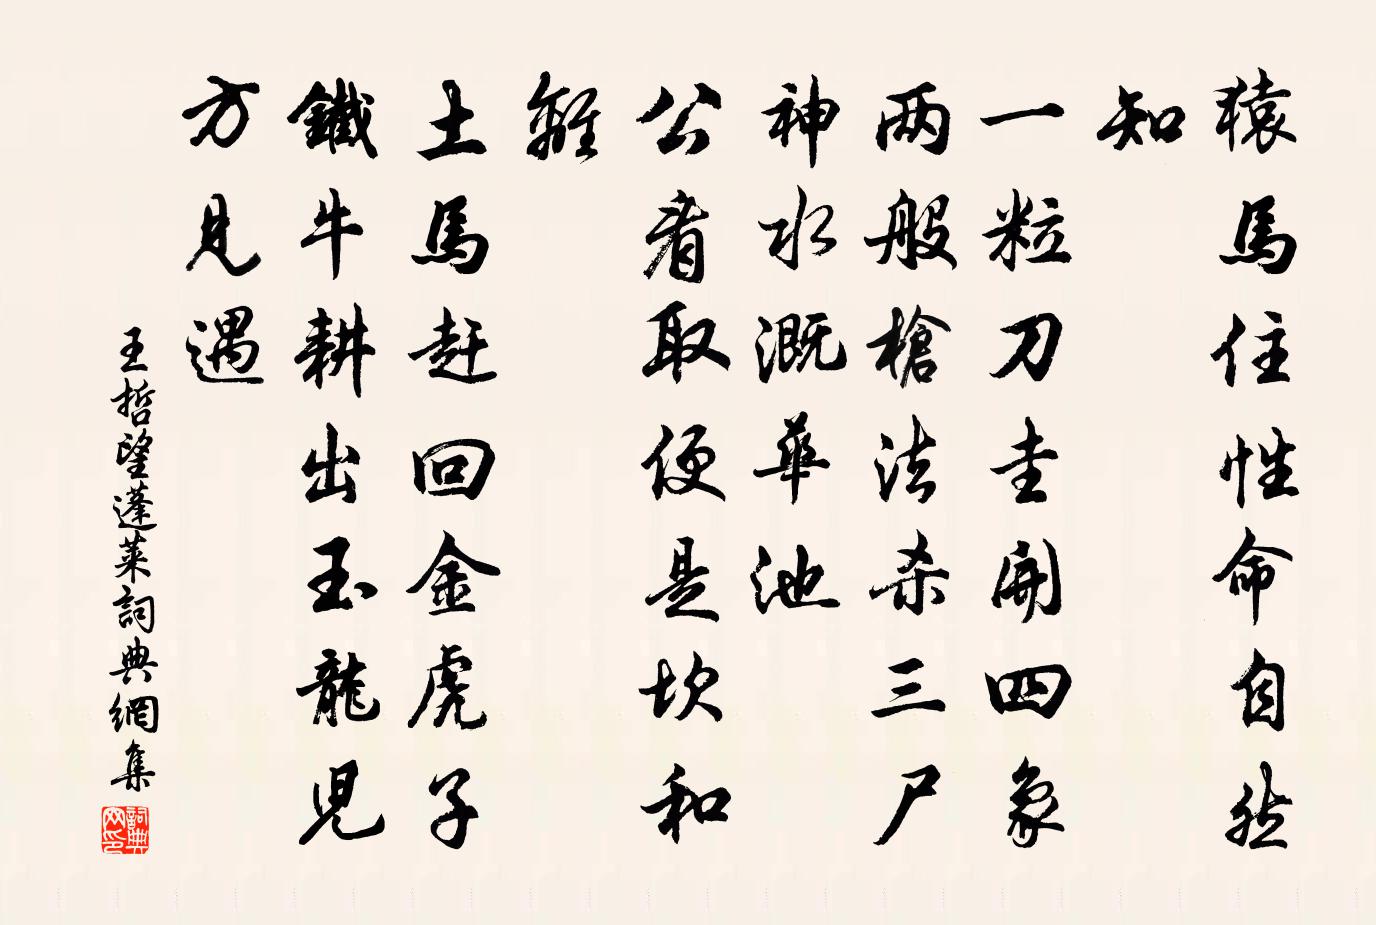 猿馬住性命自然
知
一粒刀圭開四象
两般槍法杀三尸
神水溉華池
公看取便是坎和
離
土馬赶回金虎子
鐵牛耕出玉龍児
方見遇
王哲望蓬莱詞典網集
詞典網印